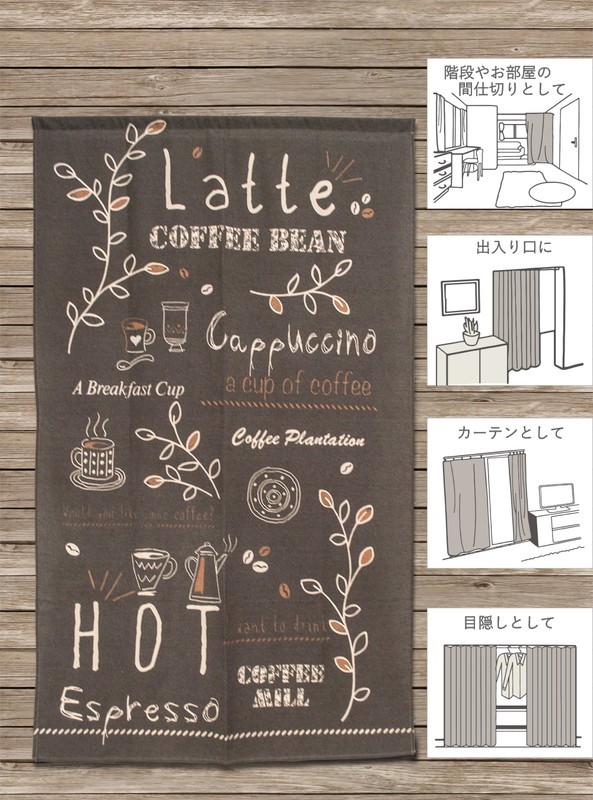 Latte
COFFEE BEAN
Cappuccino
A Breakfast Cup
a cup of coffee
Coffee Plantation
Would you like some coffee?
HOT
want to drink
COFFEE
MILL
Espresso
階段やお部屋の
間仕切りとして
出入り口に
カーテンとして
目隠しとして